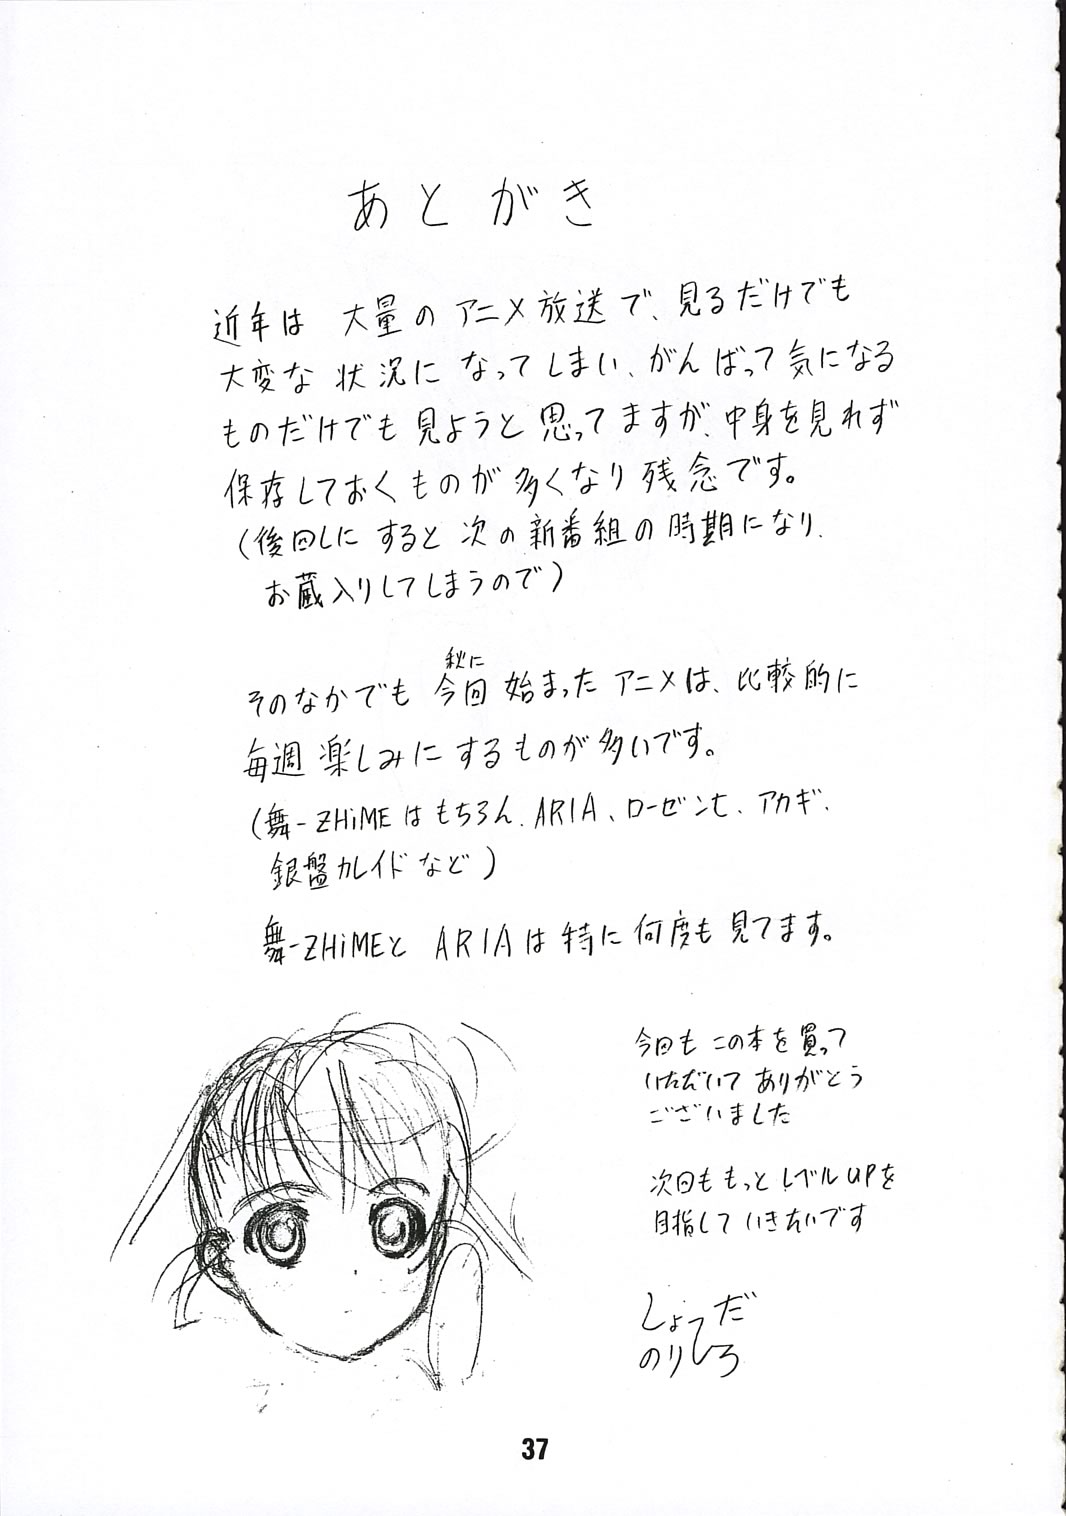 あとがき
近年は 大量の アニメ放送で、見るだけでも
大変な 状況に なってしまい、がんばって気になる
ものだけでも 見ようと 思ってますが、中身を見れず
保存しておくものが多くなり 残念です。
(後回しに すると 次の新番組の時期になり、
お蔵入りしてしまうので)
秋に
そのなかでも 今回 始まった アニメは、比較的に
毎週 楽しみに するものが多いです。
(舞-ZHiMEはもちろん、ARIA、ローゼンも、アカギ、
銀盤カレイドなど)
舞-ZHiMEと ARIAは特に何度も見てます。
今回も この本を買って
いただいて ありがとう
ございました
次回ももっと レベルUPを
目指して いきたいです
しょうだ
のりひろ
37